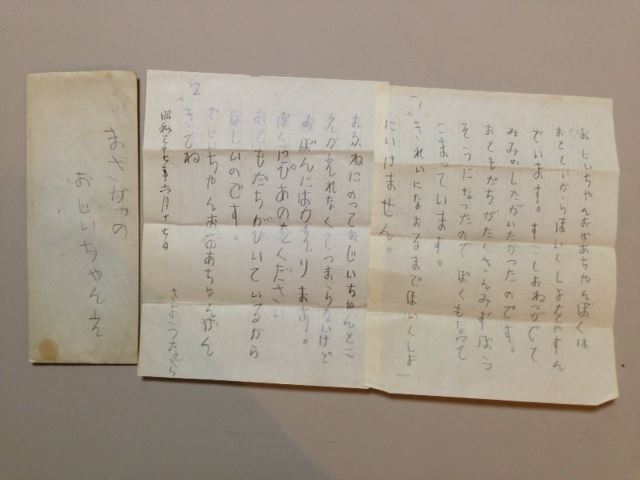 おじいちゃんおばあちゃんぼくは
おとといからほいくしよをやすん
でいます。すこしおねつがでて
みみのしたがいたかつたのです。
おともだちがたくさんみずぼう
そうになつたので ぼくもなつて
こまつています。
きれいになおるまでほいくしよ
にいけません。
おふねにのっておじいちゃんとこ
えかえれなくてつまらないけど
おぼんにはかえります。
ぼくにぴあのをください
おともだちがひいているから
ほしいのです。
おじいちゃんおばあちゃんげん
きでね
昭和三十七年六月十七日
さよ
2
おさかつの
おじいちゃんえ